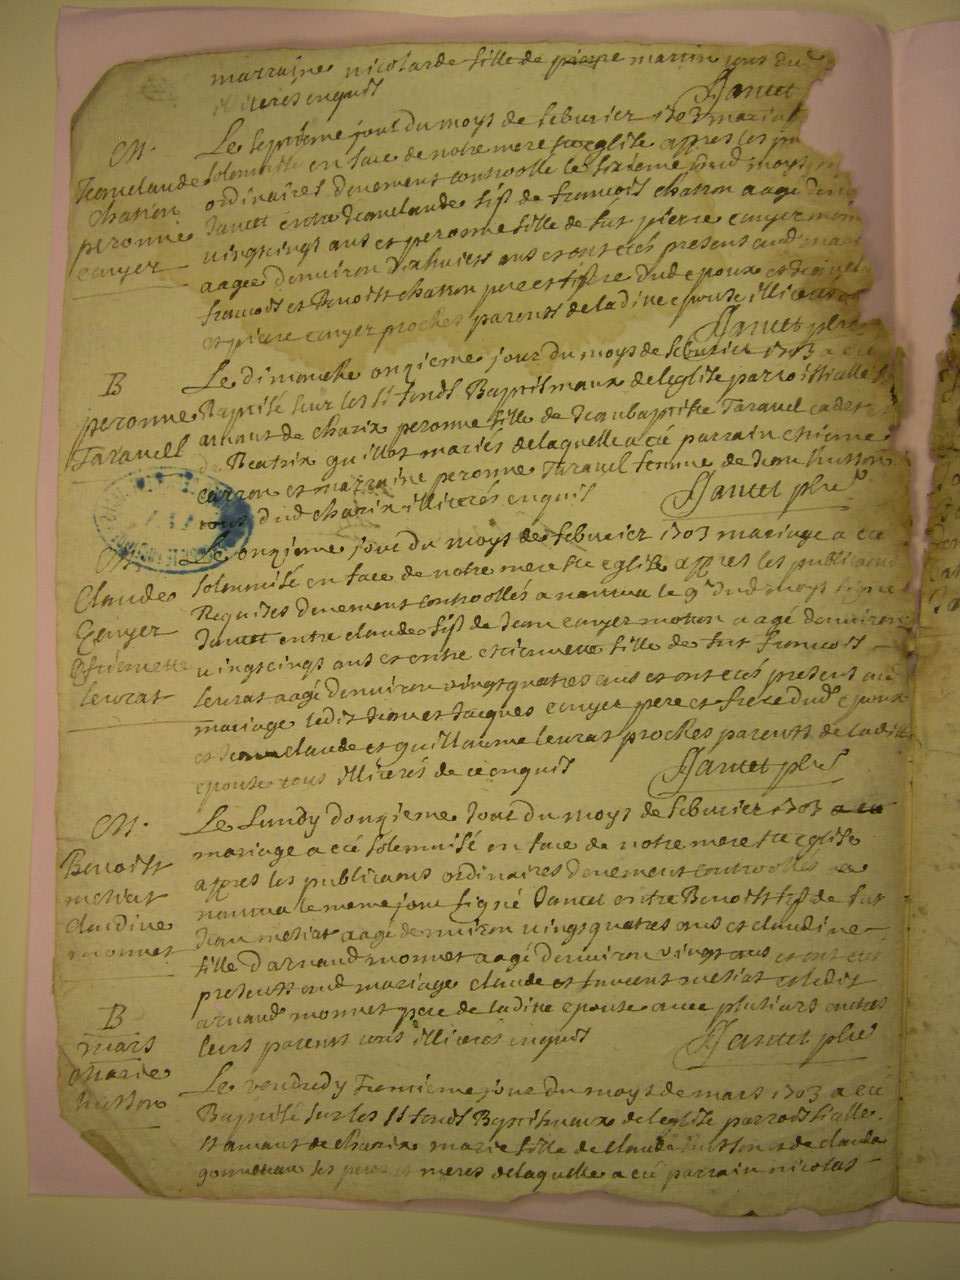 marraine nicolarde fille de pierre martin tous du
illiteres enquit
Jantet
M.
Jeanclaude
Chatton
peronne
cauyer
Le septieme jour du moys de feburier 1703 mariage
solemnisé en face de notre mere ste eglise appres les
ordinaires deuement controollé le sixieme jour dud moys
Jantet entre Jeanclaude fils de francois chatton aagé denuiron
uingtcinqs ans et peronne fille de fut pierre cauyer
aagee denuiron dixhuict ans et ont etés present aud mariage
francois et Benoist chatton pere et frere dud epoux et
et pierre cauyer proches parents de ladite epouse illiteres
Jantet pbre
B
peronne
Tarauell
Le dimanche onzieme jour du moys de feburier 1703 a eté
Baptisé sur les sts fonds Baptismaux de leglise parroissialle
amant de charix peronne fille de Jeanbaptiste Tarauel cadet
de Beatrix guillot mariés de laquelle a eté parrain etienne
carron et marraine peronne Tarauel femme de Jean husson
tous dud charix illiterés enquit
Jantet pbre
M.
Claude
Cauyer
Estiennette
leurat
Le onzieme jour du moys de feburier 1703 mariage a eté
solemnisé en face de notre mere ste eglise appres les publicaons
Requises deuement controollés a nantua le 9e dud moys signé
Jantet entre claude fils de Jean cauyer motton aagé denuiron
uingtcinqs ans et entre etiennette fille de fut francois
leurat aagé denuiron vingtquatres ans et ont etés present aud
mariage ledit Jean et Jacques cauyer pere et frere dud epoux
et Jeanclaude et guillaume leurat proches parents de ladite
epouse tous illiterés de ce enquit
Jantet pbre
M.
Benoist
metiat
claudine
monnet
Le Lundy douzieme jour du moys de feburier 1703 a eté
mariage a eté solemnisé en face de notre mere ste eglise
appres les publicaons ordinaires deuement controolles a
nantua le meme jour signé Jantet entre Benoist fils de fut
Jean metiat aagé denuiron uingtquatres ans et claudine
fille d'arnaud monnet aagé denuiron vingt ans et ont etés
presents aud mariage claude et vincent metiat et ledit
arnaud monnet pere de ladite epouse auec plusiurs autres
leurs parents tous illiteres enquit
Jantet pbre
B
mars
Marie
husson
Le vendredy jour du moys de mars 1703 a eté
Baptisé sur les st fonds Baptismaux de leglise parroissialle
st amant de charix marie fille de claude husson et de clauda
gonnetan ses peres et meres de laquelle a eté parrain nicolas